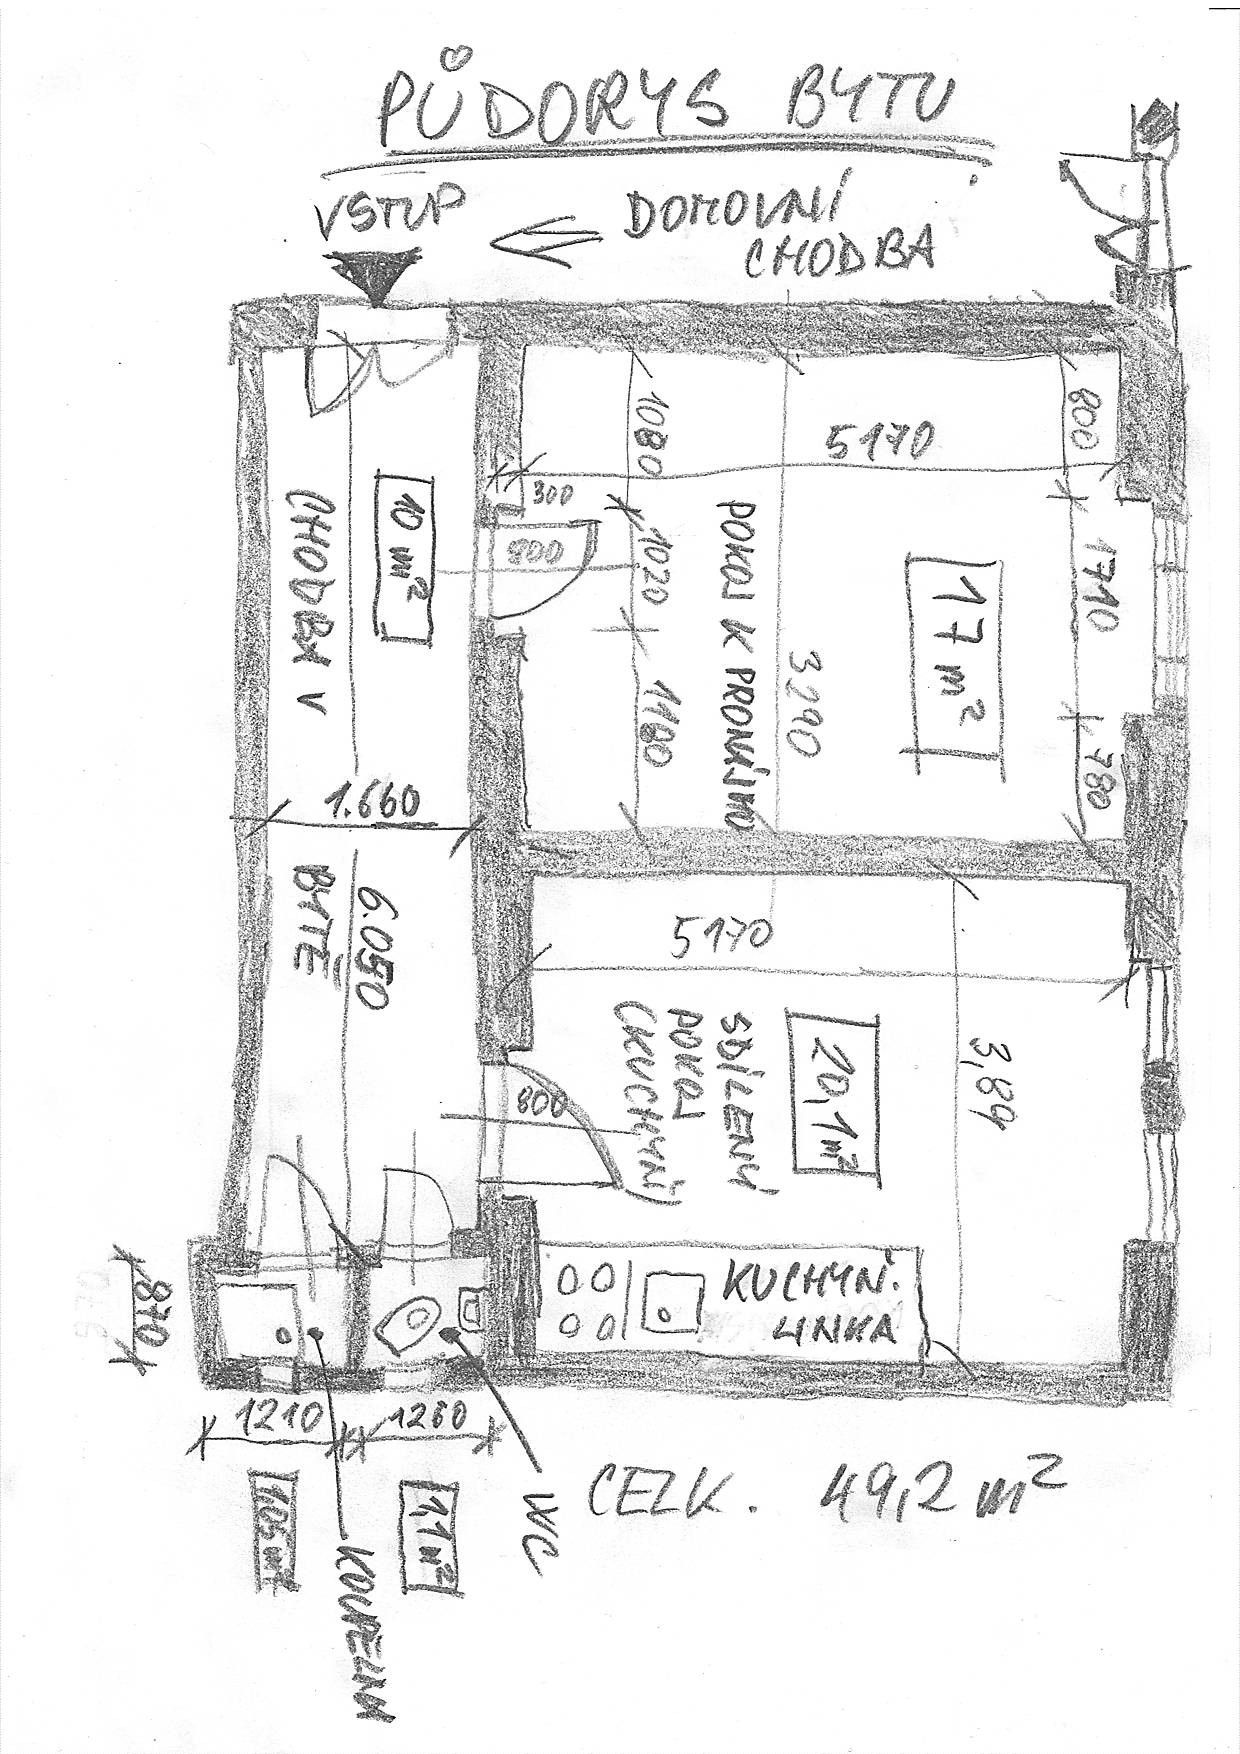 PŮDORYS BYTU
VSTUP
DOMOVNÍ
CHODBA
10 m²
CHODBA V
BYTĚ
1.660
6.050
1080
300
900
1020
1180
5170
800
1710
780
3290
POKOJ K PRONÁJMU
17 m²
5170
SDÍLENÝ
POKOJ
(KUCHYNĚ)
20,1 m²
3,89
800
KUCHYŇ.
LINKA
870
1210
1260
1,05 m²
1,1 m²
KOUPELNA
WC
CELK. 49,2 m²